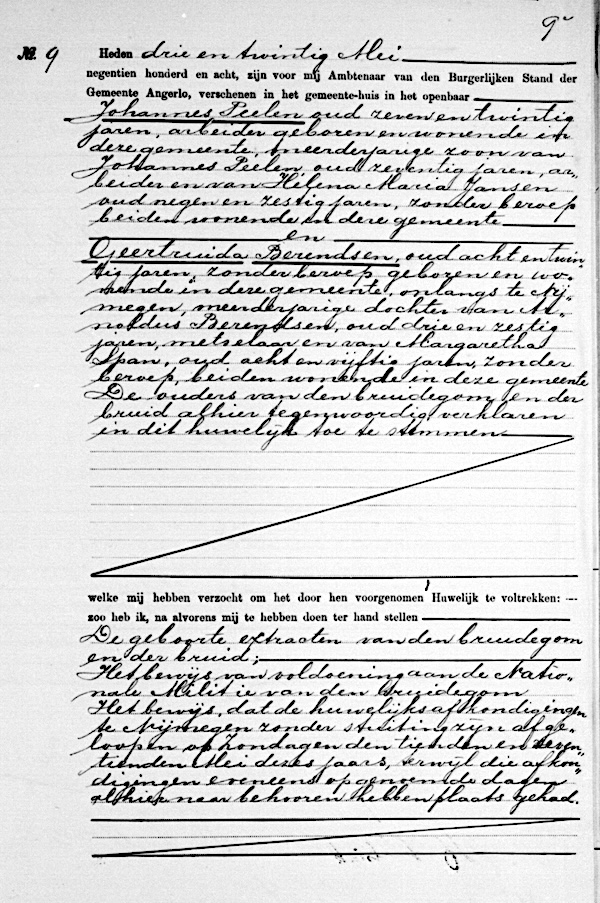 9
№. 9 Heden drie en twintig Mei
negentien honderd en acht, zijn voor mij Ambtenaar van den Burgerlijken Stand der
Gemeente Angerlo, verschenen in het gemeente-huis in het openbaar
Johannes Peelen oud zeven en twintig
jaren, arbeider geboren en wonende in
deze gemeente, meerderjarige zoon van
Johannes Peelen, oud zeventig jaren, ar-
beider en van Helena Maria Jansen
oud negen en zestig jaren, zonder beroep
beiden wonende in deze gemeente
en
Geertruida Berendsen, oud acht en twin-
tig jaren, zonder beroep geboren en wo-
nende in deze gemeente, onlangs te Nij-
megen, meerderjarige dochter van Ar-
noldus Berendsen, oud drie en zestig
jaren, metselaar en van Margaretha
Span, oud acht en vijftig jaren, zonder
beroep, beiden wonende in deze gemeente
De ouders van den bruidegom en der
bruid alhier tegenwoordig verklaren
in dit huwelijk toe te stemmen
welke mij hebben verzocht om het door hen voorgenomen Huwelijk te voltrekken: —
zoo heb ik, na alvorens mij te hebben doen ter hand stellen
De geboorte extracten van den bruidegom
en der bruid;
Het bewijs van voldoening aan de Natio-
nale Militie van den bruidegom
Het bewijs, dat de huwelijksafkondigingen
te Nijmegen zonder stuiting zijn afge-
loopen op Zondagen den tienden en zeven-
tienden Mei dezes jaars, terwijl die afkon-
digingen eveneens op genoemde dagen
alhier naar behooren hebben plaats gehad.